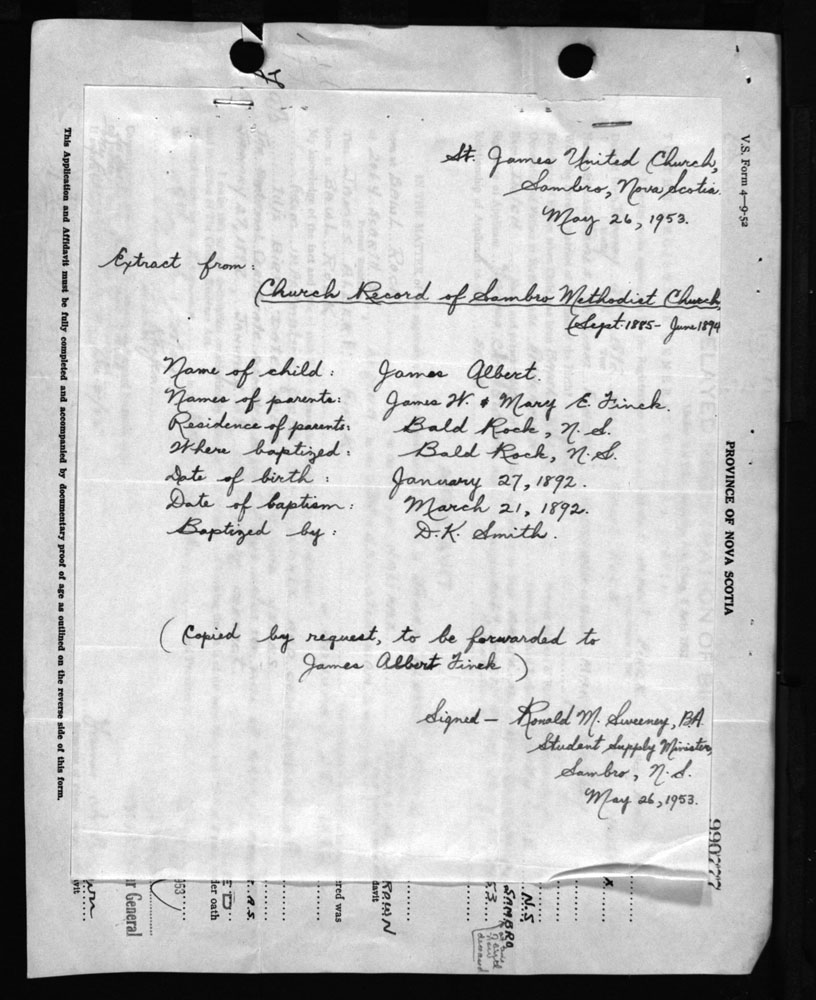 St. James United Church,
Sambro, Nova Scotia.
May 26, 1953.
Extract from:
Church Record of Sambro Methodist Church
(Sept. 1885 - June 1894
Name of child: James Albert.
Names of parents: James W. & Mary E. Finck.
Residence of parents: Bald Rock, N.S.
Where baptized: Bald Rock, N.S.
Date of birth: January 27, 1892.
Date of baptism: March 21, 1892.
Baptized by: D.K. Smith.
(Copied by request, to be forwarded to
James Albert Finck)
Signed - Ronald M. Sweeney, BA
Student Supply Minister,
Sambro, N.S.
May 26, 1953.
V.S. Form 4—9-52
PROVINCE OF NOVA SCOTIA
This Application and Affidavit must be fully completed and accompanied by documentary proof of age as outlined on the reverse side of this form.
N.S.
SAMBRO
53
davit
red was
A.S.
der oath
953
r General
vit